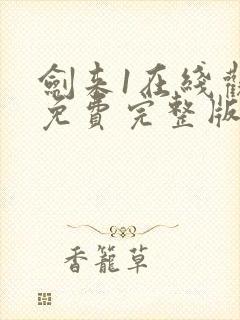 劍來1在綫觀
免費完整版
香籠草